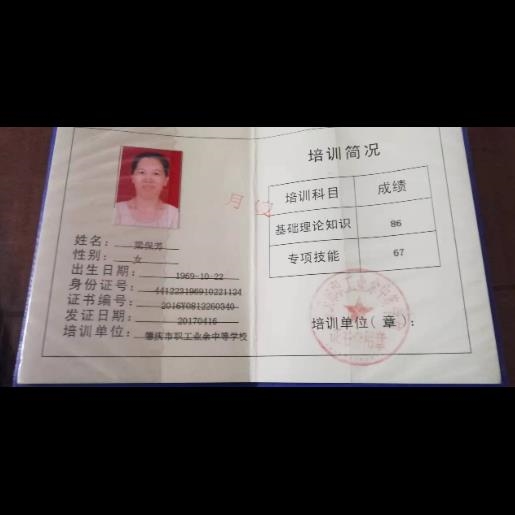 姓名: 梁保芳
性别: 女
出生日期: 1969-10-22
身份证号: 441223196910221124
证书编号: 2016Y0812260340
发证日期: 20170416
培训单位: 肇庆市职工业余中等学校
月
培训简况
培训科目 成绩
基础理论知识 86
专项技能 67
培训单位(章):